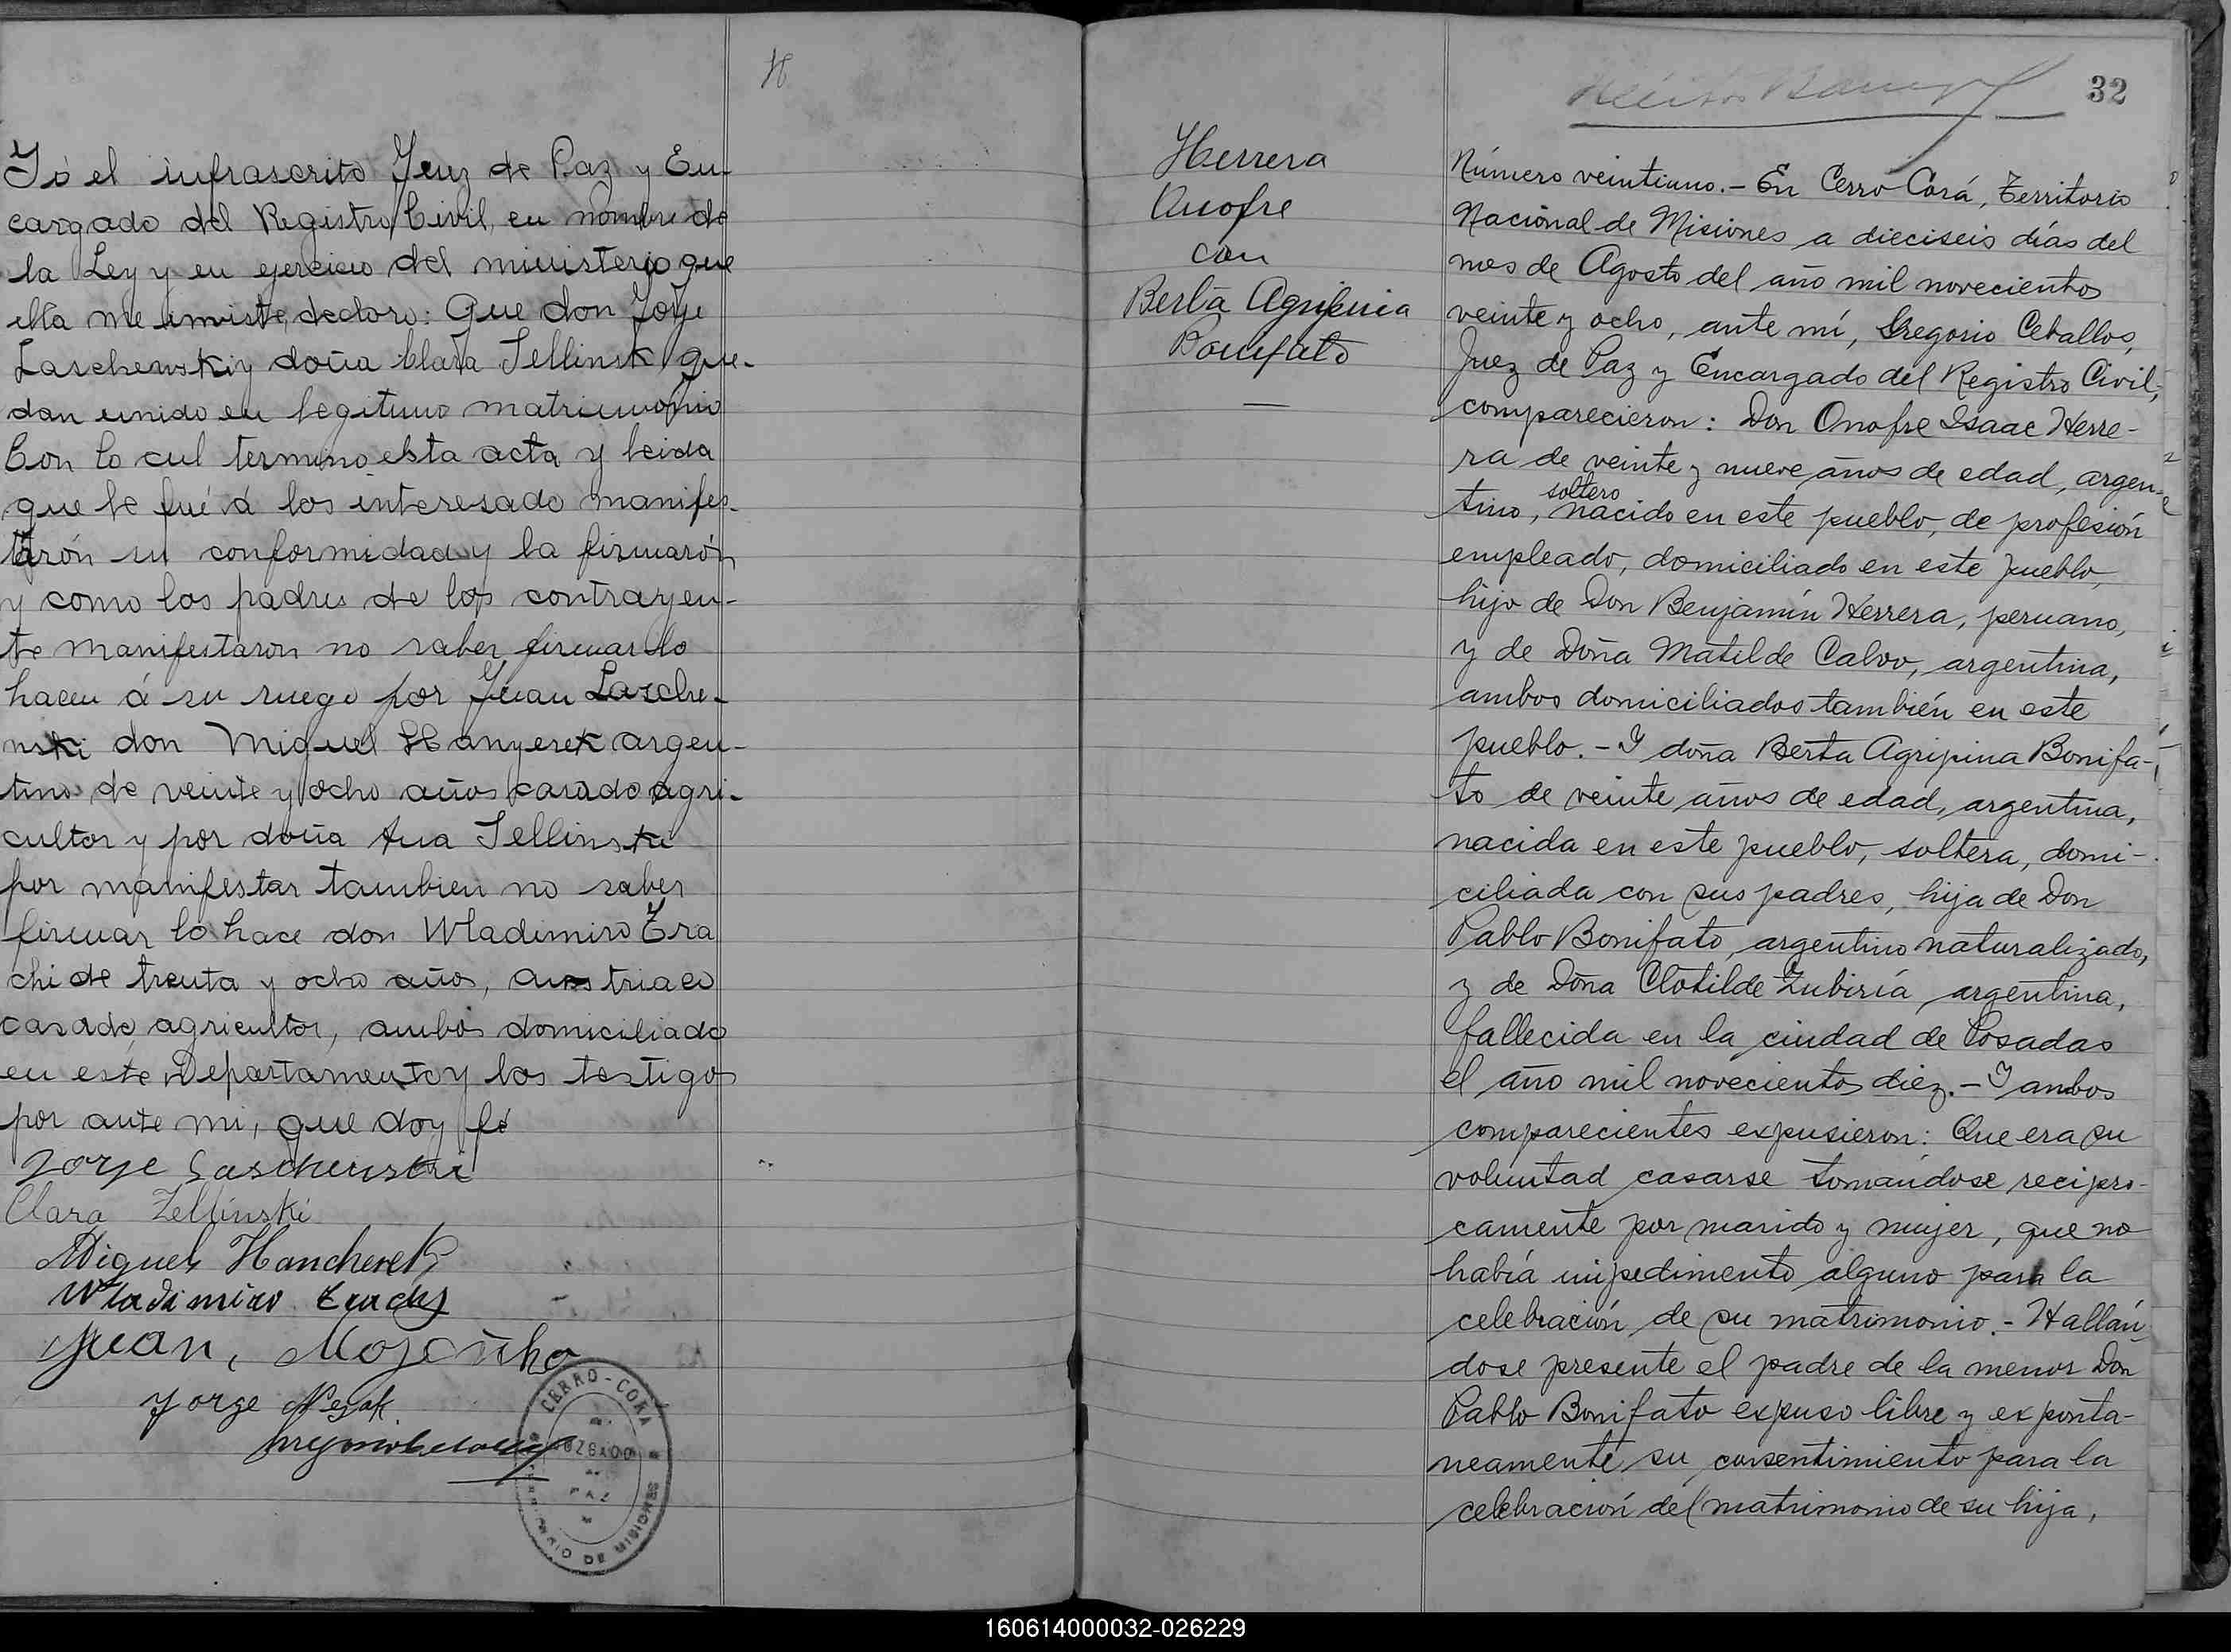 Yó el infrascrito Jeuz de Paz y En-
cargado del Registro Civil, en nombre de
la Ley y en ejercicio del ministerio que
ella me inviste, declaro: Que don Jorje
Laschenski y doña Clara Sellinsk que-
dan unido en legitimo matrimonio
Con lo cul termino esta acta y leida
que le fué á los interesado manifes-
tarón su conformidad y la firmarón
y como los padres de los contrayen-
te manifestaron no saber firmar lo
hacen á su ruego por Juan Lasche-
nski don Miguel Hanyerek argen-
tino de veinte y ocho años casado agri-
cultor y por doña Ana Sellinski
por manifestar tambien no saber
firmar lo hace don Wladimiro Zra
chi de trenta y ocho años, austriaco
casado, agricultor, ambos domiciliado
en este Departamento y los testigos
por ante mi, que doy fé
Jorje Laschenski
Clara Zellinski
Miguel Hancherek
Wladimiro
Juan,
Jorge
CERRO-CORÁ
JUZGADO
DE
PAZ
TERRITORIO DE MISIONES
H
Herrera
Onofre
con
Berta Agripina
Bonifato
32
Número veintiuno.- En Cerro Corá, Territorio
Nacional de Misiones a dieciseis días del
mes de Agosto del año mil novecientos
veinte y ocho, ante mí, Gregorio Ceballos,
Juez de Paz y Encargado del Registro Civil,
comparecieron: Don Onofre Isaac Herre-
ra de veinte y nueve años de edad, argen-
soltero
tino, nacido en este pueblo, de profesión
empleado, domiciliado en este pueblo,
hijo de Don Benjamín Herrera, peruano,
y de Doña Matilde Calvo, argentina,
ambos domiciliados también en este
pueblo.- Y doña Berta Agripina Bonifa-
to de veinte años de edad, argentina,
nacida en este pueblo, soltera, domi-
ciliada con sus padres, hija de Don
Pablo Bonifato, argentino naturalizado,
y de Doña Clotilde Zubiría, argentina,
fallecida en la ciudad de Posadas
el año mil novecientos diez.- Y ambos
comparecientes expusieron: Que era su
voluntad casarse tomándose recipro-
camente por marido y mujer, que no
había impedimento alguno para la
celebración de su matrimonio.- Hallán-
dose presente el padre de la menor Don
Pablo Bonifato expuso libre y exponta-
neamente su consentimiento para la
celebración del matrimonio de su hija,
160614000032-026229